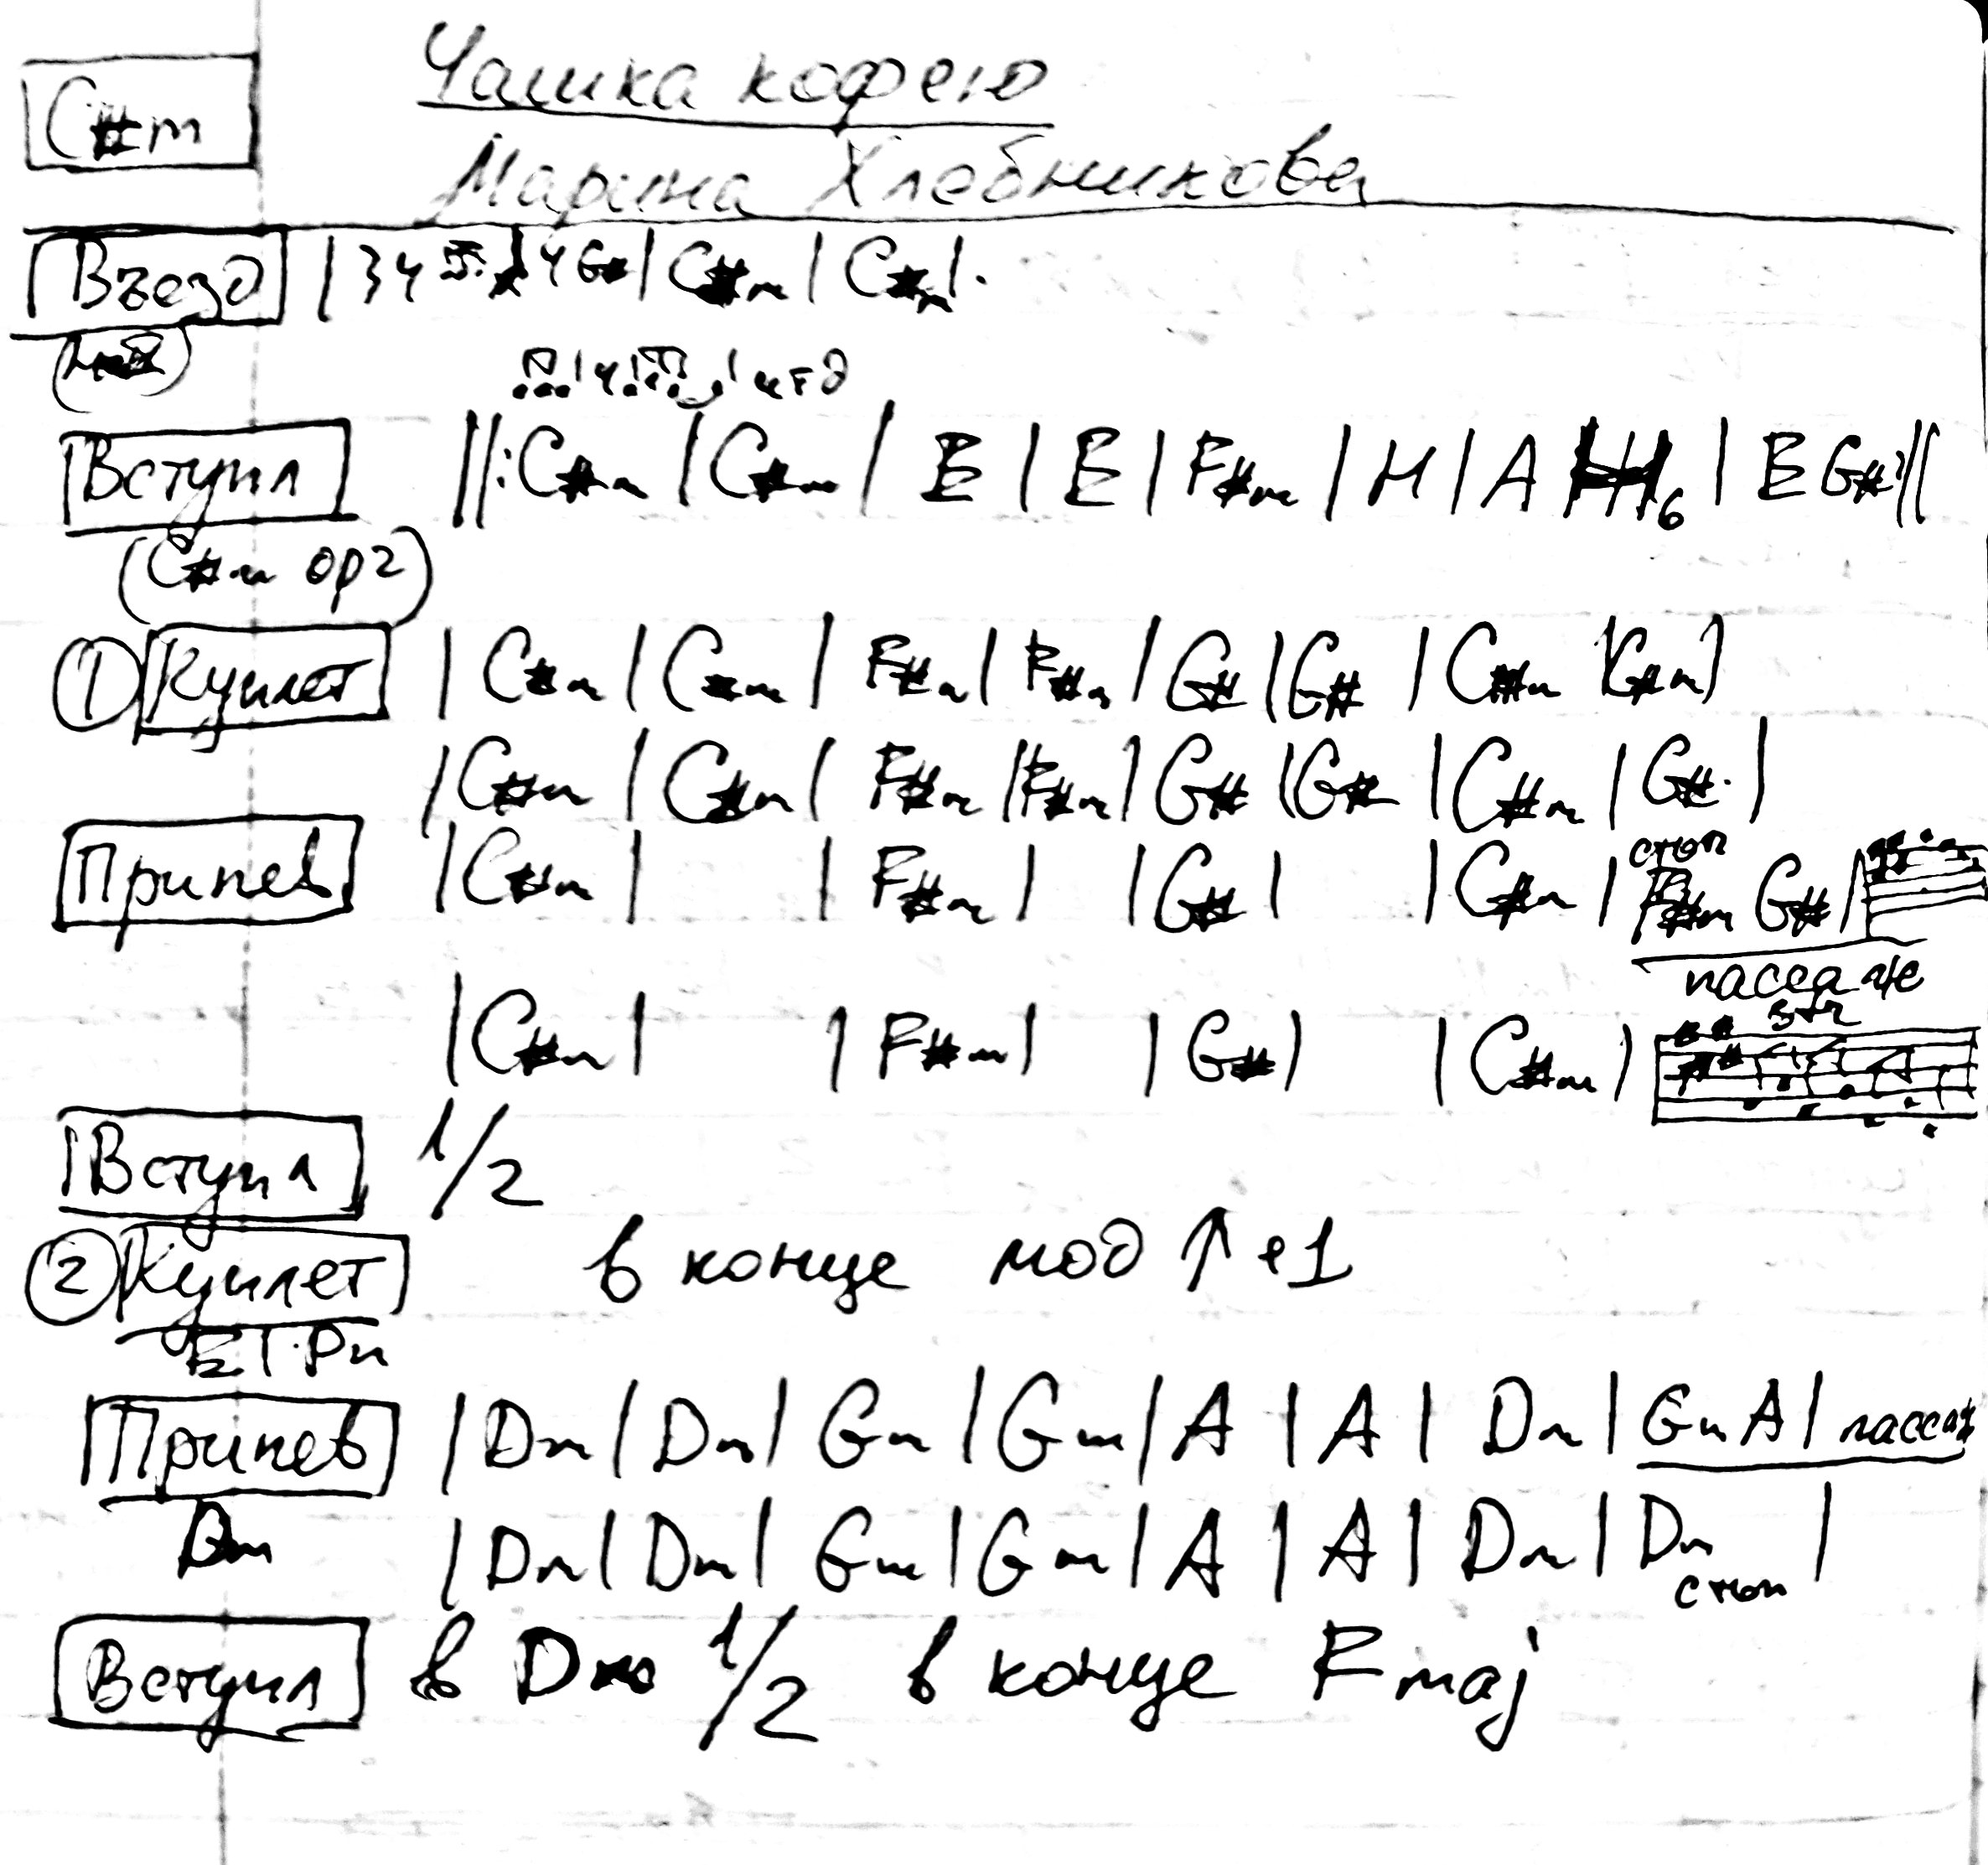 C#m Чашка кофею
Марина Хлебникова
Въезд | 34 4 G# | C#m | C#m |.
и т д
Вступл ||: C#m | C#m | E | E | F#m | H | A H6 | E G# :||
(C#m орг)
① Куплет | C#m | C#m | F#m | F#m | G# | G# | C#m | (G#m)
| C#m | C#m | F#m | F#m | G# | G# | C#m | G#. |
Припев | C#m | | F#m | | G# | | C#m | стоп F#m G# |
пассаж
| C#m | | F#m | | G# | | C#m |
Вступл 1/2
② Куплет в конце мод ↑ 1
Припев | Dm | Dm | Gm | Gm | A | A | Dm | Gm A | пассаж
Dm | Dm | Dm | Gm | Gm | A | A | Dm | Dm стоп |
Вступл в Dm 1/2 в конце Fmaj